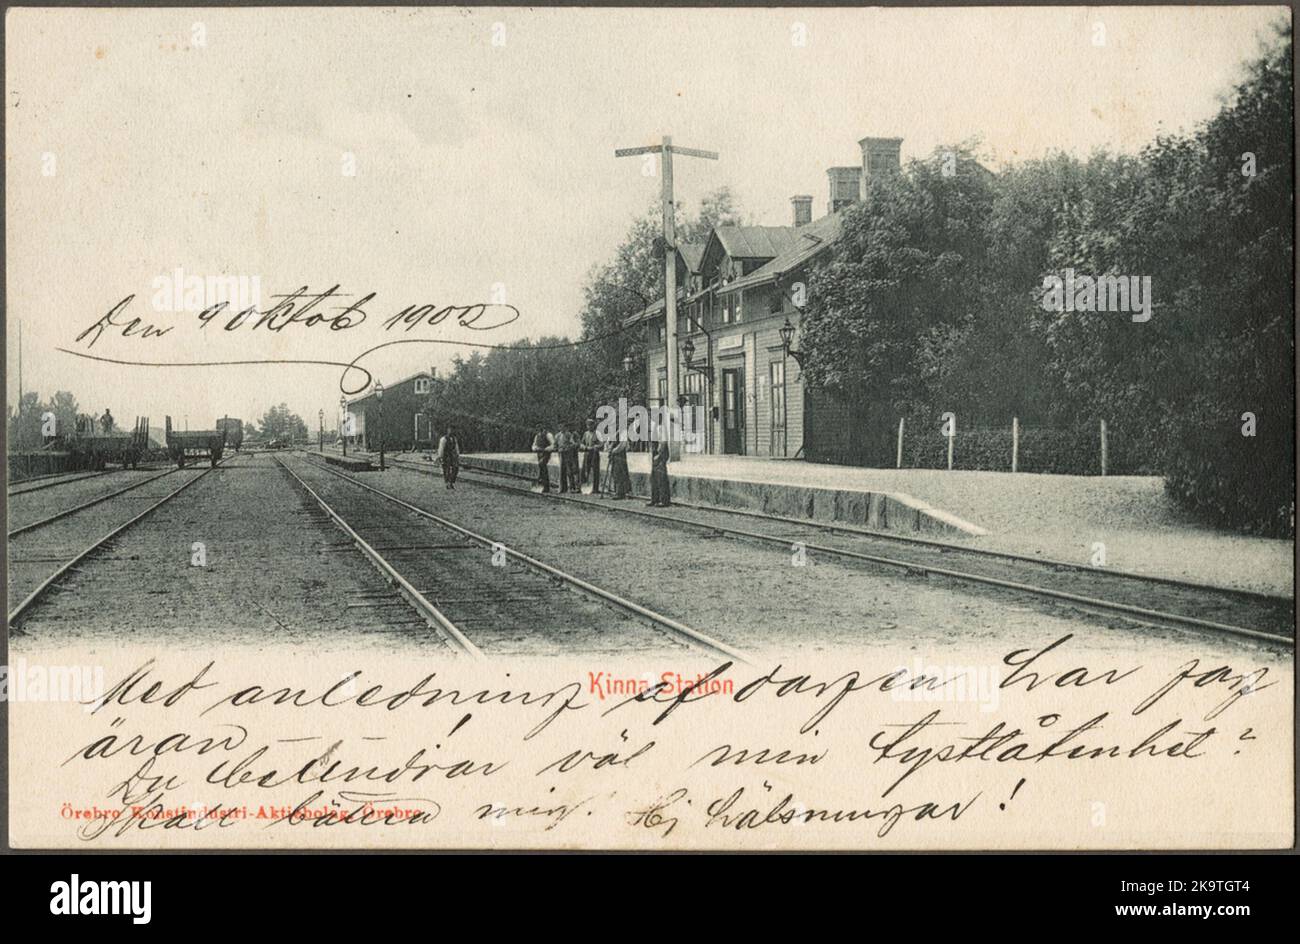 Den 9 oktob 1902
Kinna Station
Med anledning af dagen har jag
äran — — !
Du beundrar väl min tystlåtenhet?
Örebro Konstindustri-Aktiebolag, Örebro
Skall bättra mig. Hj hälsningar!
alamy
Image ID: 2K9TGT4
www.alamy.com